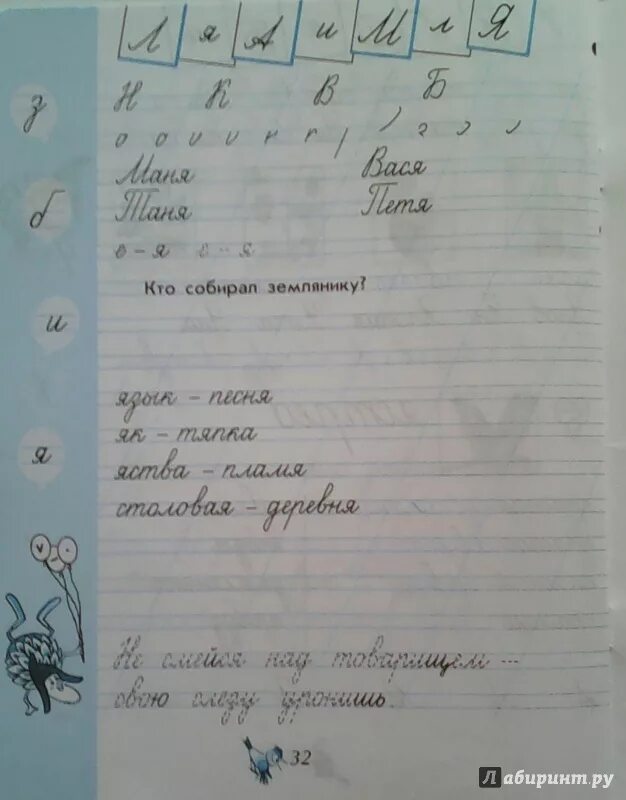 Л я А и М л Я
Н К В Б
з
Маня Вася
б
Таня Петя
в - я в - я
Кто собирал землянику?
и
язык - песня
як - тяпка
я
яства - пламя
столовая - деревня
Не смейся над товарищем ...
свою следу уронишь.
32
Лабиринт.ру